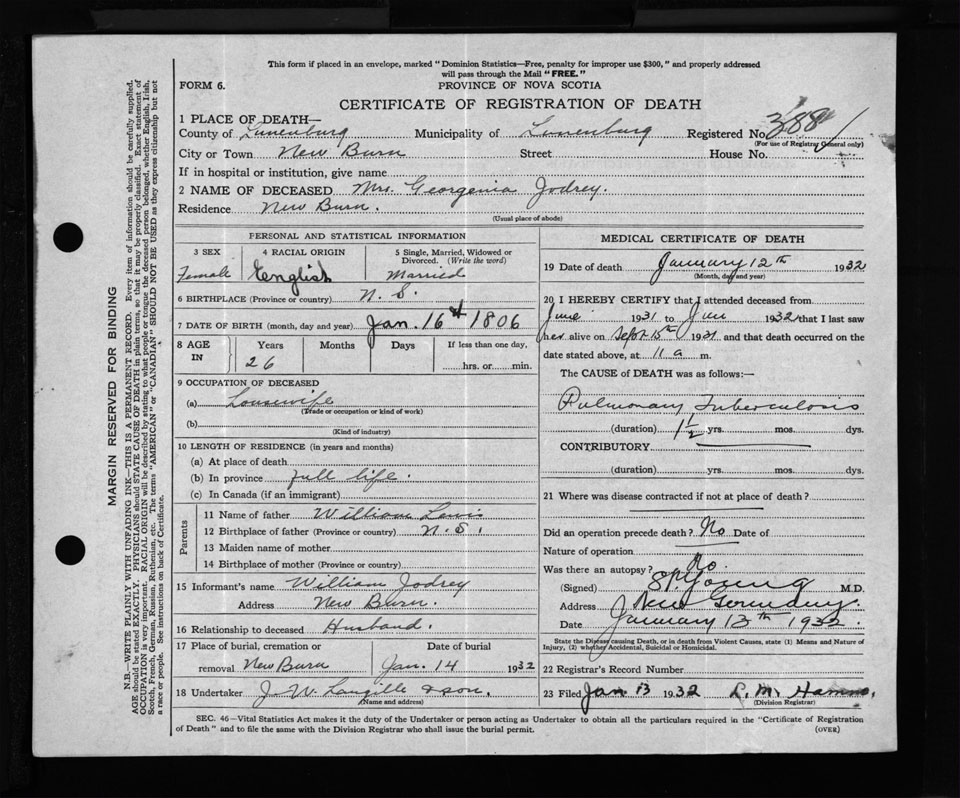 This form if placed in an envelope, marked "Dominion Statistics—Free, penalty for improper use $300," and properly addressed
will pass through the Mail "FREE."
FORM 6.
PROVINCE OF NOVA SCOTIA
CERTIFICATE OF REGISTRATION OF DEATH
1 PLACE OF DEATH—
County of Lunenburg Municipality of Lunenburg Registered No. 388
(For use of Registrar General only)
City or Town New Burn Street House No.
If in hospital or institution, give name
2 NAME OF DECEASED Mrs. Georgenia Jodrey.
Residence New Burn.
(Usual place of abode)
PERSONAL AND STATISTICAL INFORMATION
3 SEX 4 RACIAL ORIGIN 5 Single, Married, Widowed or
Divorced. (Write the word)
Female English Married
6 BIRTHPLACE (Province or country) N. S.
7 DATE OF BIRTH (month, day and year) Jan. 16 1806
8 AGE IN Years Months Days If less than one day,
26 hrs. or min.
9 OCCUPATION OF DECEASED
(a) Housewife
(Trade or occupation or kind of work)
(b)
(Kind of industry)
10 LENGTH OF RESIDENCE (in years and months)
(a) At place of death
(b) In province full life.
(c) In Canada (if an immigrant)
Parents
11 Name of father William Lewis
12 Birthplace of father (Province or country) N. S.
13 Maiden name of mother
14 Birthplace of mother (Province or country)
15 Informant's name William Jodrey
Address New Burn.
16 Relationship to deceased Husband.
17 Place of burial, cremation or Date of burial
removal New Burn Jan. 14 1932
18 Undertaker J. W. Langille & son.
(Name and address)
MEDICAL CERTIFICATE OF DEATH
19 Date of death January 12th 1932
(Month, day and year)
20 I HEREBY CERTIFY that I attended deceased from
June 1931 to Jan 1932 that I last saw
her alive on Sept 15th 1931 and that death occurred on the
date stated above, at 11 a m.
The CAUSE of DEATH was as follows:—
Pulmonary Tuberculosis
(duration) 1 1/2 yrs. mos. dys.
CONTRIBUTORY
(duration) yrs. mos. dys.
21 Where was disease contracted if not at place of death?
Did an operation precede death? No Date of
Nature of operation
Was there an autopsy? No.
(Signed) Young M.D.
Address New Germany.
Date January 13th 1932
State the Disease causing Death, or in death from Violent Causes, state (1) Means and Nature of
Injury, (2) whether Accidental, Suicidal or Homicidal.
22 Registrar's Record Number
23 Filed Jan 13 1932
(Division Registrar)
SEC. 46—Vital Statistics Act makes it the duty of the Undertaker or person acting as Undertaker to obtain all the particulars required in the "Certificate of Registration
of Death" and to file the same with the Division Registrar who shall issue the burial permit.
(OVER)
MARGIN RESERVED FOR BINDING
N.B.—WRITE PLAINLY WITH UNFADING INK—THIS IS A PERMANENT RECORD. Every item of information should be carefully supplied.
AGE should be stated EXACTLY. PHYSICIANS should STATE CAUSE OF DEATH in plain terms, so that it may be properly classified. Exact statement of
OCCUPATION is very important. RACIAL ORIGIN will be described by stating to what people or tongue the deceased person belonged, whether English, Irish,
Scotch, French, German, Russian, Ruthenian, etc. The terms "AMERICAN" or "CANADIAN" SHOULD NOT BE USED as they express citizenship but not
a race or people. See instructions on back of Certificate.